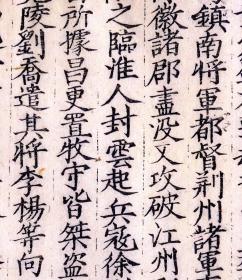 鎮南將軍都督荆州諸軍
徽諸郡盡没又攻破江州
之臨淮人封雲起兵寇徐
所據昌更置牧守皆桀盜
陵劉喬遣其將李楊等向